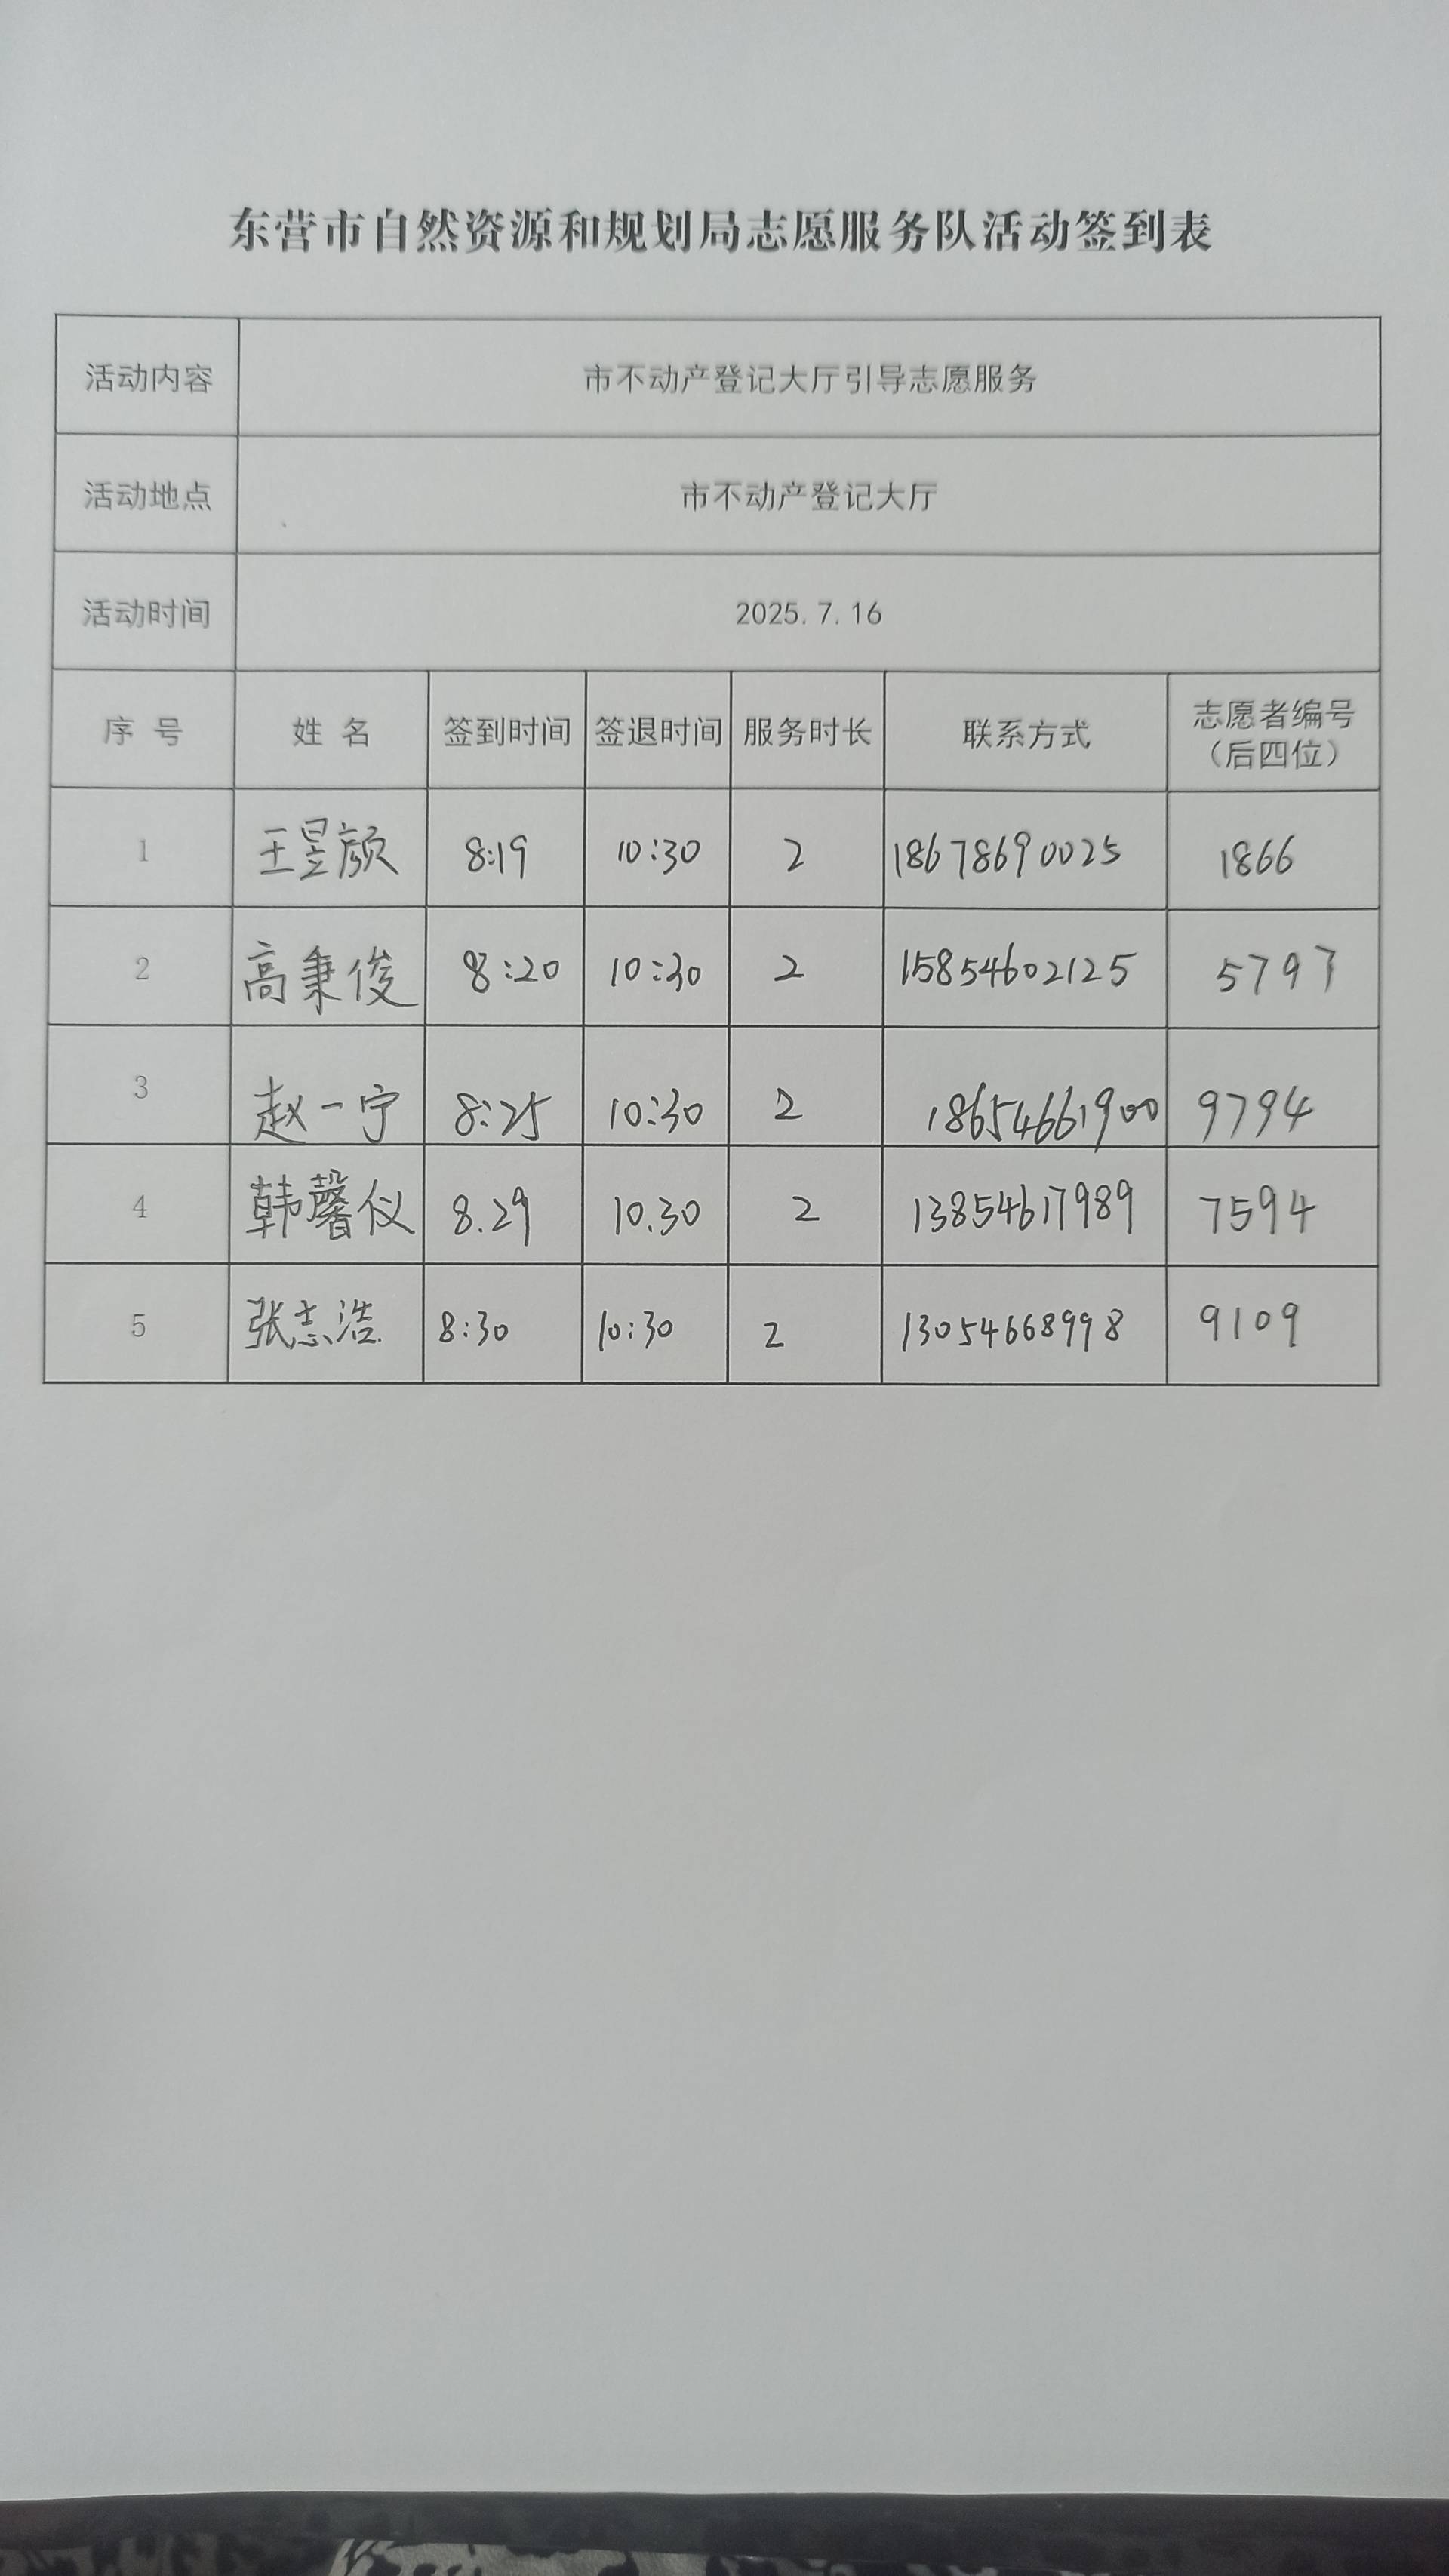 东营市自然资源和规划局志愿服务队活动签到表
活动内容 市不动产登记大厅引导志愿服务
活动地点 市不动产登记大厅
活动时间 2025.7.16
序 号 姓 名 签到时间 签退时间 服务时长 联系方式 志愿者编号
（后四位）
1 王昱颜 8:19 10:30 2 18678690025 1866
2 高秉俊 8:20 10:30 2 15854602125 5797
3 赵一宁 8:25 10:30 2 18654661900 9794
4 韩馨仪 8.29 10.30 2 13854617989 7594
5 张志浩 8:30 10:30 2 13054668998 9109